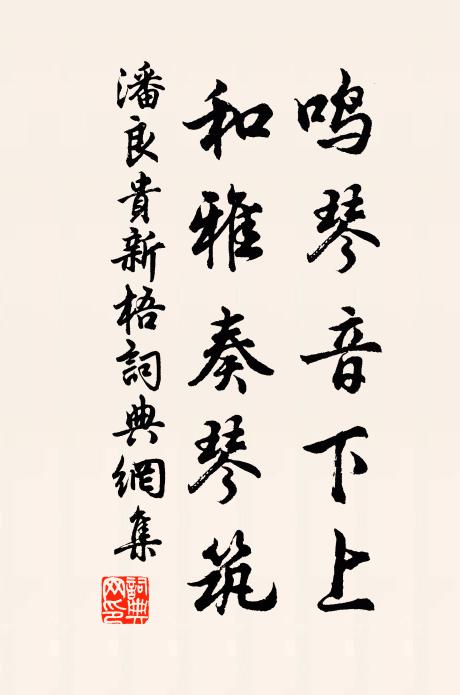 鸣琴音下上
和雅奏琴筑
潘良貴新梧詞典網集
詞典
网印